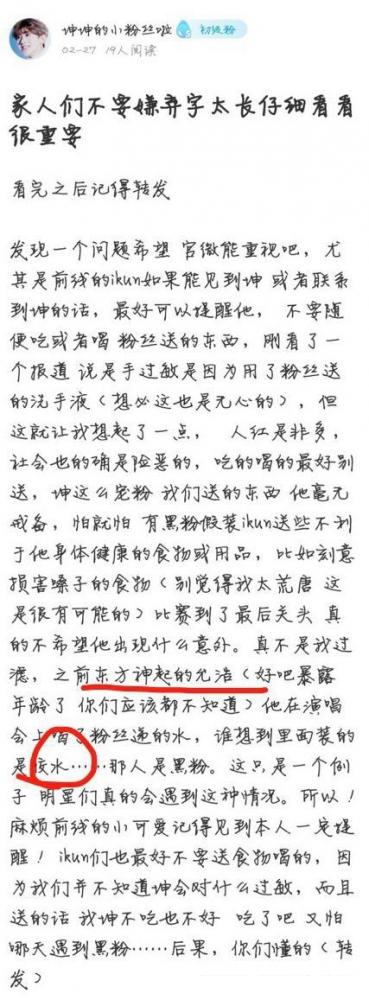 坤坤的小粉丝啦 初级粉
02-27 19人阅读
家人们不要嫌弃字太长仔细看看
很重要
看完之后记得转发
发现一个问题希望 官微能重视吧，尤
其是前线的ikun如果能见到坤 或者联系
到坤的话，最好可以提醒他， 不要随
便吃或者喝 粉丝送的东西，刚看了一
个报道 说是手过敏是因为用了粉丝送
的洗手液（想必这也是无心的），但
这就让我想起了一点， 人红是非多，
社会也的确是险恶的，吃的喝的最好别
送，坤这么宠粉 我们送的东西 他毫无
戒备，怕就怕 有黑粉假装ikun送些不利
于他身体健康的食物或用品，比如刻意
损害嗓子的食物（别觉得我太荒唐 这
是很有可能的）比赛到了最后关头 真
的不希望他出现什么意外。真不是我过
滤，之前东方神起的允浩（好吧暴露
年龄了 你们应该都不知道）他在演唱
会上喝了粉丝递的水，谁想到里面装的
是胶水……那人是黑粉。这只是一个例
子 明星们真的会遇到这种情况。所以！
麻烦前线的小可爱记得见到本人一定提
醒！ikun们也最好不要送食物喝的，因
为我们并不知道坤会对什么过敏，而且
送的话 我坤不吃也不好 吃了吧 又怕
哪天遇到黑粉……后果，你们懂的（转
发）